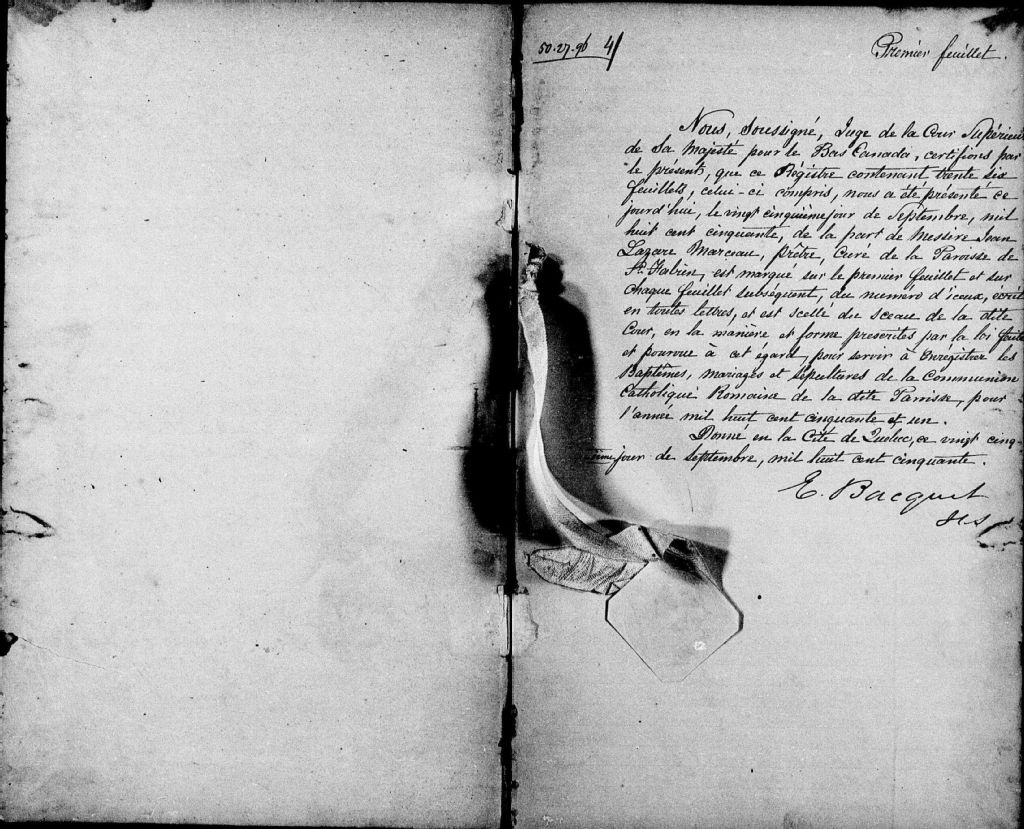 50-27-96 4/
Premier feuillet.
Nous, soussigné, Juge de la Cour Supérieure
de Sa Majesté pour le Bas Canada, certifions par
le présent, que ce Régistre contenant trente six
feuillets, celui-ci compris, nous a été présenté ce
jourd'hui, le vingt cinquième jour de Septembre, mil
huit cent cinquante, de la part de Messire Jean
Lazare Marceau, prêtre, Curé de la Paroisse de
St. Fabien, est marqué sur le premier feuillet et sur
chaque feuillet subséquent, du numéro d'iceux, écrit
en toutes lettres, et est scellé du sceau de la dite
Cour, en la manière et forme prescrites par la loi faite
et pourvue à cet égard, pour servir à Enrégistrer les
Baptêmes, mariages et Sépultures de la Communion
Catholique Romaine de la dite Paroisse, pour
l'année mil huit cent cinquante et un.
Donné en la Cité de Québec, ce vingt cinq-
ième jour de septembre, mil huit cent cinquante.
E. Bacquet